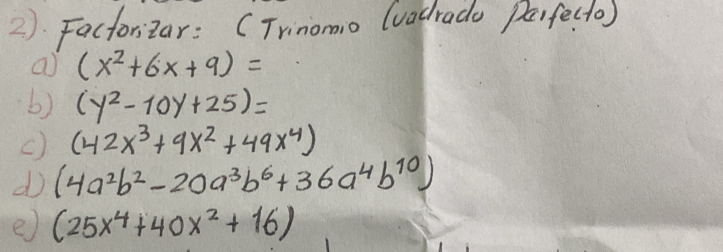 2). Factorizar: (Trinomio Cuadrado Perfecto)
a) (x²+6x+9) =
b) (y²-10y+25)=
c) (42x³+9x²+49x⁴)
d) (4a²b²-20a³b⁶+36a⁴b¹⁰)
e) (25x⁴+40x²+16)